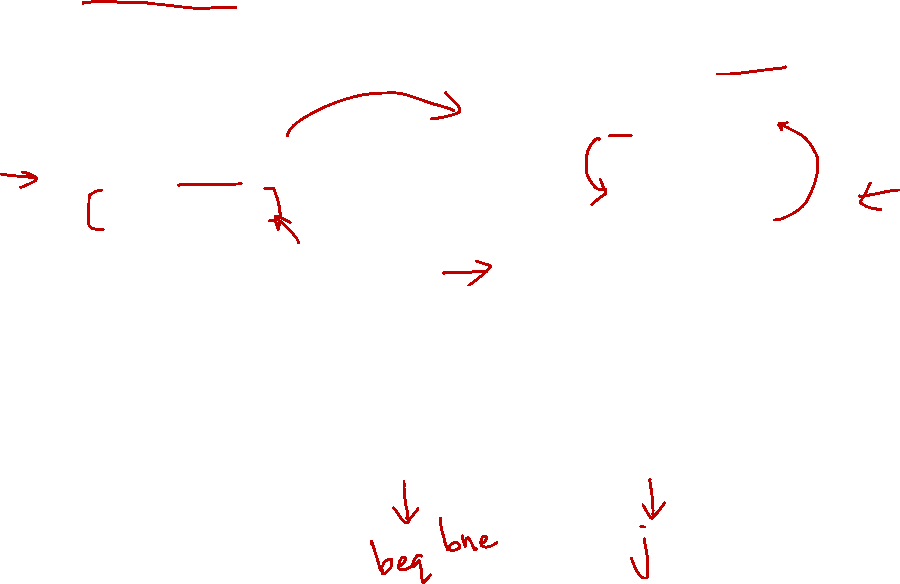 beq bne j